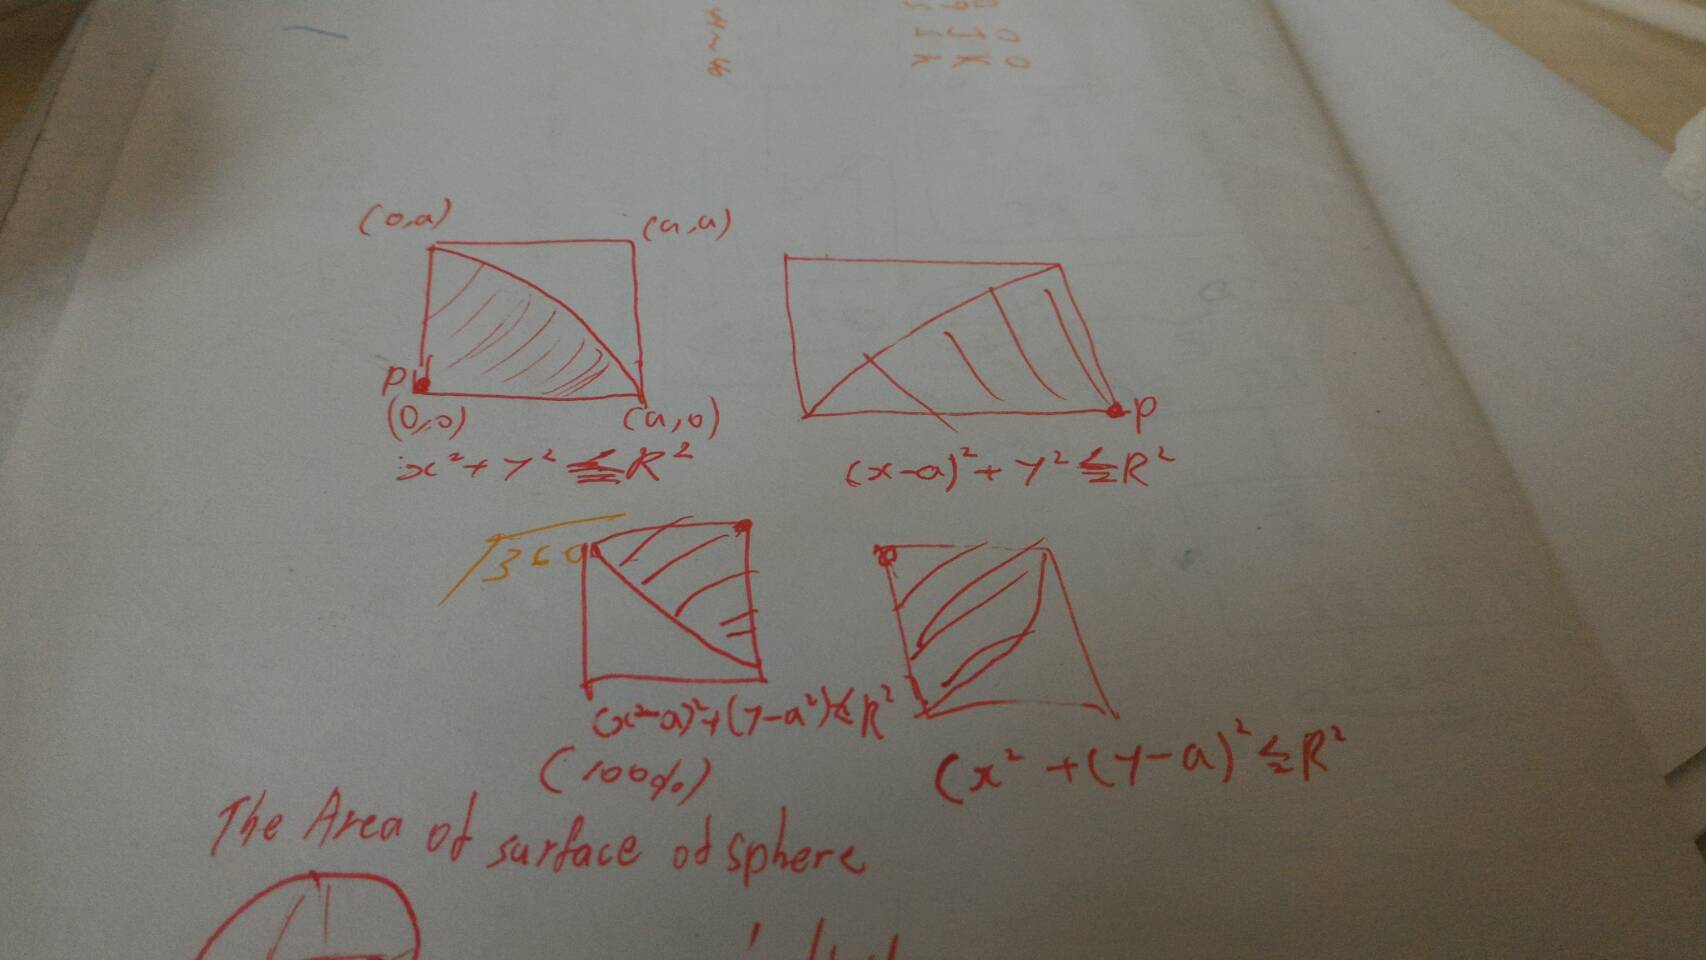 (0,a) (a,a)
P
(0,0) (a,0)
P
x² + y² ≤ R²
(x-a)² + y² ≤ R²
360
(x²-a)² + (y-a²) ≤ R²
(100%)
(x² + (y-a)² ≤ R²
The Area of surface of sphere